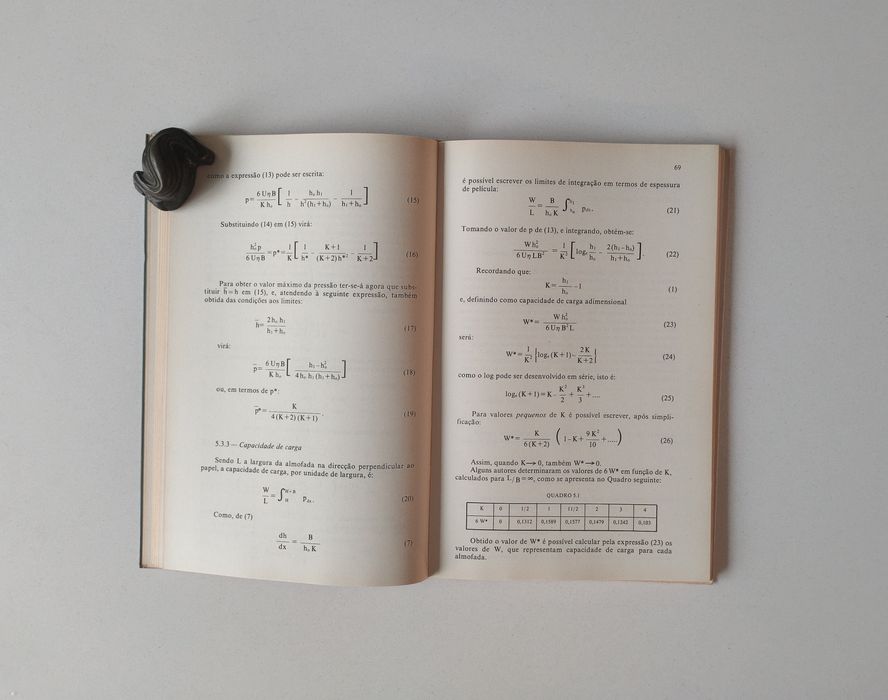 como a expressão (13) pode ser escrita:
p = 6 U η B / K h₀ [ 1/h - h₀ h₁ / h²(h₁+h₀) - 1 / h₁+h₀ ] (15)
Substituindo (14) em (15) virá:
h₀² p / 6 U η B = p* = 1/K [ 1/h* - K+1 / (K+2) h*² - 1 / K+2 ] (16)
Para obter o valor máximo da pressão ter-se-á agora que subs-
tituir h = h̄ em (15), e, atendendo à seguinte expressão, também
obtida das condições aos limites:
h̄ = 2 h₀ h₁ / h₁+h₀ (17)
virá:
p̄ = 6 U η B / K h₀ [ h₁-h₀² / 4 h₀ h₁ (h₁+h₀) ] (18)
ou, em termos de p*:
p̄* = K / 4 (K+2) (K+1) . (19)
5.3.3 — Capacidade de carga
Sendo L a largura da almofada na direcção perpendicular ao
papel, a capacidade de carga, por unidade de largura, é:
W/L = ∫ p dx. (20)
Como, de (7)
dh/dx = B / h₀ K (7)
69
é possível escrever os limites de integração em termos de espessura
de película:
W/L = B / h₀ K ∫ p dx. (21)
Tomando o valor de p de (13), e integrando, obtém-se:
W h₀² / 6 U η L B² = 1/K² [ logₑ h₁/h₀ - 2(h₁-h₀) / h₁+h₀ ] . (22)
Recordando que:
K = h₁/h₀ - 1 (1)
e, definindo como capacidade de carga adimensional
W* = W h₀² / 6 U η B² L (23)
será:
W* = 1/K² [ logₑ (K+1) - 2 K / K+2 ] (24)
como o log pode ser desenvolvido em série, isto é:
logₑ (K+1) = K - K²/2 + K³/3 + .... (25)
Para valores pequenos de K é possível escrever, após simpli-
ficação:
W* = K / 6 (K+2) ( 1-K + 9 K²/10 + ..... ) (26)
Assim, quando K → 0, também W* → 0.
Alguns autores determinaram os valores de 6 W* em função de K,
calculados para L/B = ∞, como se apresenta no Quadro seguinte:
QUADRO 5.1
K 0 1/2 1 11/2 2 3 4
6 W* 0 0,1312 0,1589 0,1577 0,1479 0,1242 0,103
Obtido o valor de W* é possível calcular pela expressão (23) os
valores de W, que representam capacidade de carga para cada
almofada.